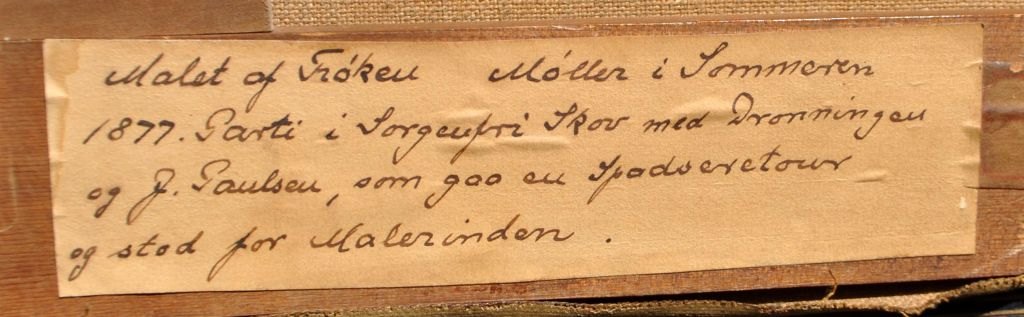 Malet af Frøken Møller i Sommeren
1877. Parti i Sorgenfri Skov med Dronningen
og J. Paulsen, som gaa en Spadseretour
og stod for Malerinden.